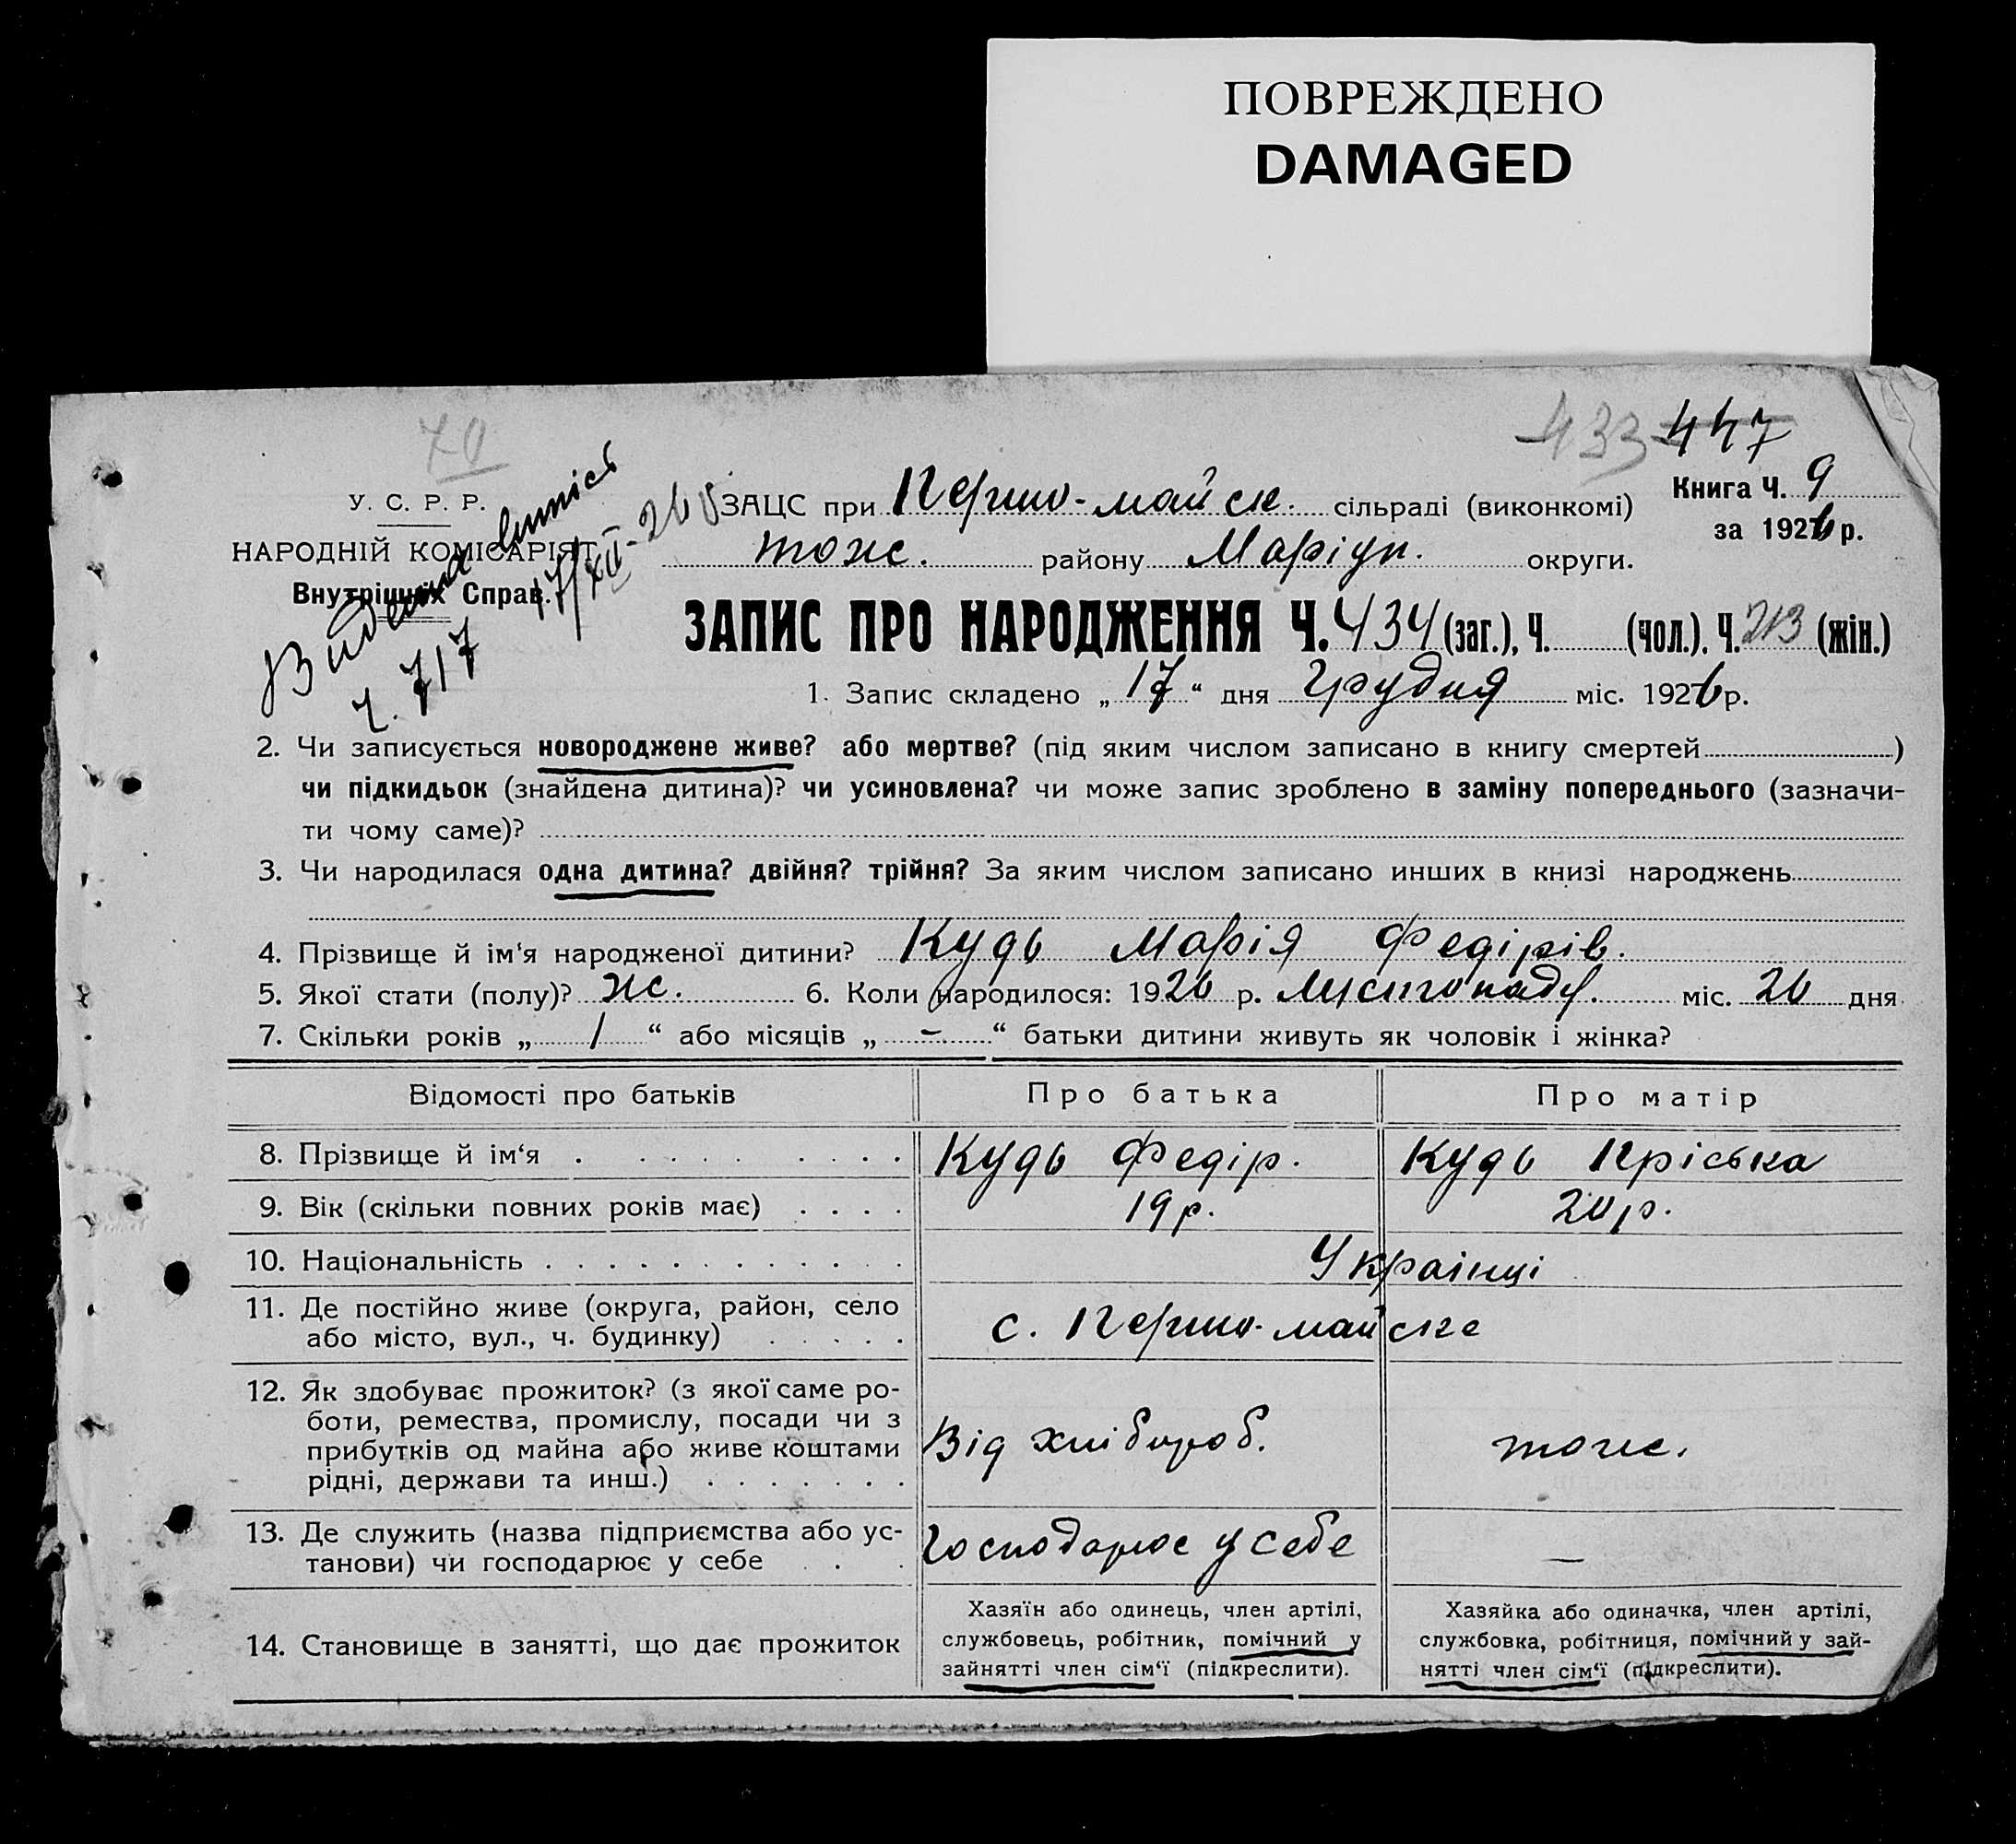 ПОВРЕЖДЕНО
DAMAGED
70
433 447
У. С. Р. Р.
НАРОДНІЙ КОМІСАРІЯТ
Внутрішніх Справ.
Видана випись
17/XII-26
Ч. 717
ЗАЦС при Першо-майськ. сільраді (виконкомі)
Книга Ч. 9
за 1926 р.
тож. району Маріуп. округи.
ЗАПИС ПРО НАРОДЖЕННЯ Ч. 434 (заг.), Ч. (чол.). Ч. 213 (жін.)
1. Запис складено „17“ дня Грудня міс. 1926 р.
2. Чи записується новороджене живе? або мертве? (під яким числом записано в книгу смертей )
чи підкидьок (знайдена дитина)? чи усиновлена? чи може запис зроблено в заміну попереднього (зазначи-
ти чому саме)?
3. Чи народилася одна дитина? двійня? трійня? За яким числом записано инших в книзі народжень
4. Прізвище й ім‘я народженої дитини? Кудь Марія Федірів.
5. Якої стати (полу)? ж. 6. Коли народилося: 1926 р. Листопаду. міс. 26 дня
7. Скільки років „ 1 “ або місяців „ – “ батьки дитини живуть як чоловік і жінка?
Відомості про батьків Про батька Про матір
8. Прізвище й ім‘я Кудь Федір. Кудь Пріська
9. Вік (скільки повних років має) 19 р. 20 р.
10. Національність Украінці
11. Де постійно живе (округа, район, село
або місто, вул., ч. будинку) с. Першо-майське
12. Як здобуває прожиток? (з якої саме ро-
боти, ремества, промислу, посади чи з
прибутків од майна або живе коштами
рідні, держави та инш.) Від хліборoб. тож.
13. Де служить (назва підприємства або ус-
танови) чи господарює у себе Господарює у себе —
14. Становище в занятті, що дає прожиток
Хазяїн або одинець, член артілі,
службовець, робітник, помічний у
зайнятті член сім‘ї (підкреслити).
Хазяйка або одиначка, член артілі,
службовка, робітниця, помічний у зай-
нятті член сім‘ї (підкреслити).